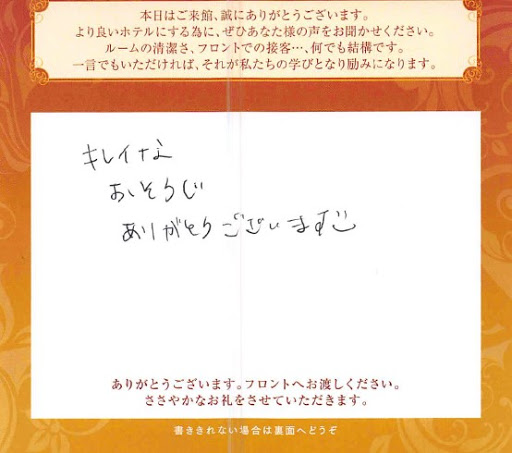 本日はご来館、誠にありがとうございます。
より良いホテルにする為に、ぜひあなた様の声をお聞かせください。
ルームの清潔さ、フロントでの接客…、何でも結構です。
一言でもいただければ、それが私たちの学びとなり励みになります。
キレイな
おそうじ
ありがとうございます
ありがとうございます。フロントへお渡しください。
ささやかなお礼をさせていただきます。
書ききれない場合は裏面へどうぞ